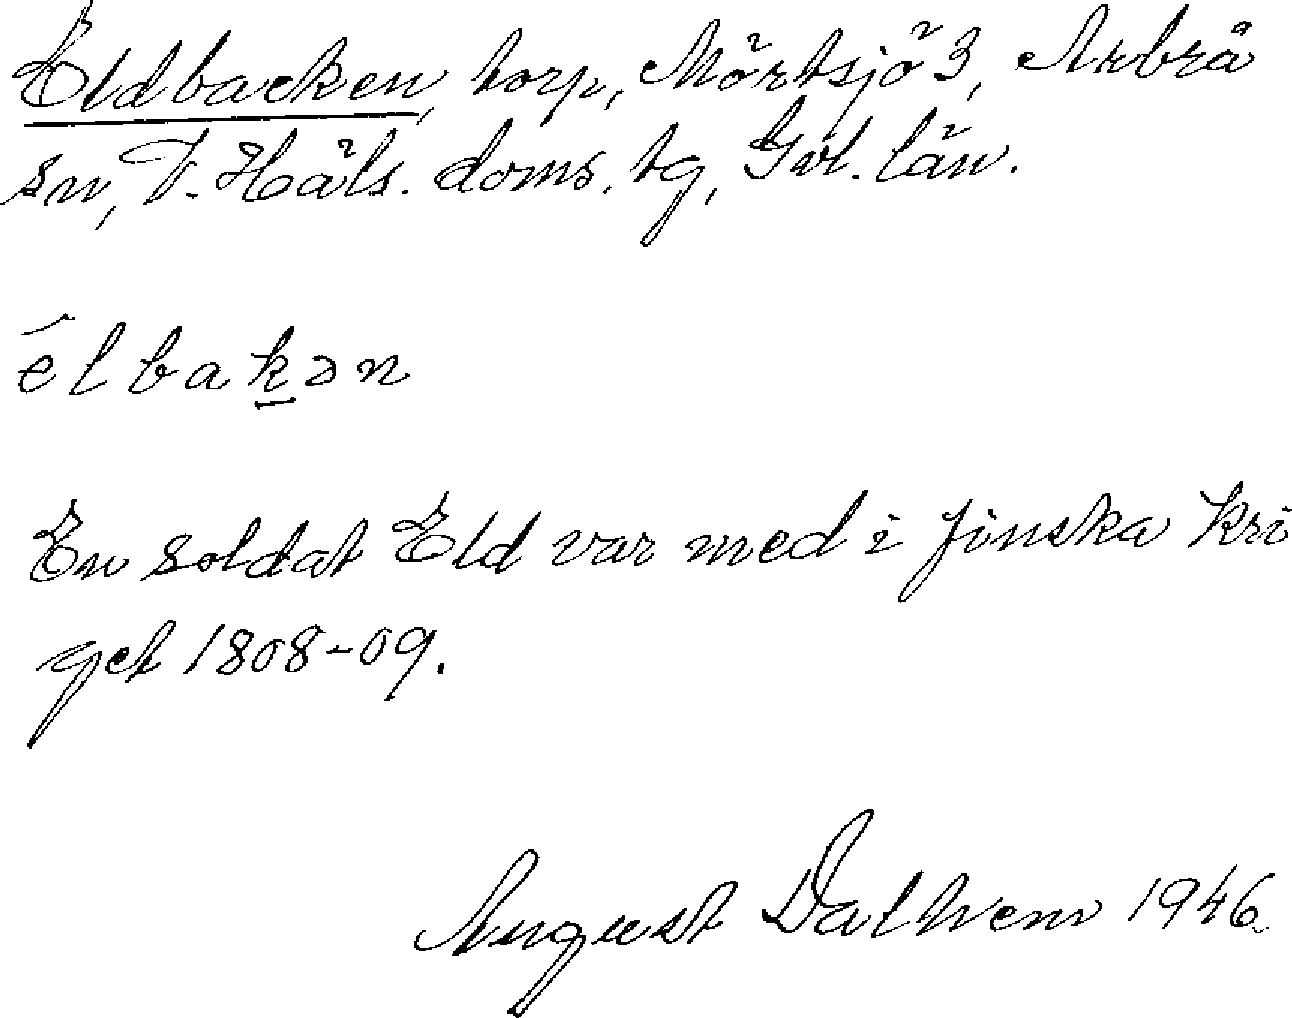 Eldbacken, torp, Mörtsjö 3, Arbrå
sn, V. Häls. doms. tg, Gävl. län.
élbakən
En soldat Eld var med i finska kri
get 1808-09.
August Dalhem 1946.